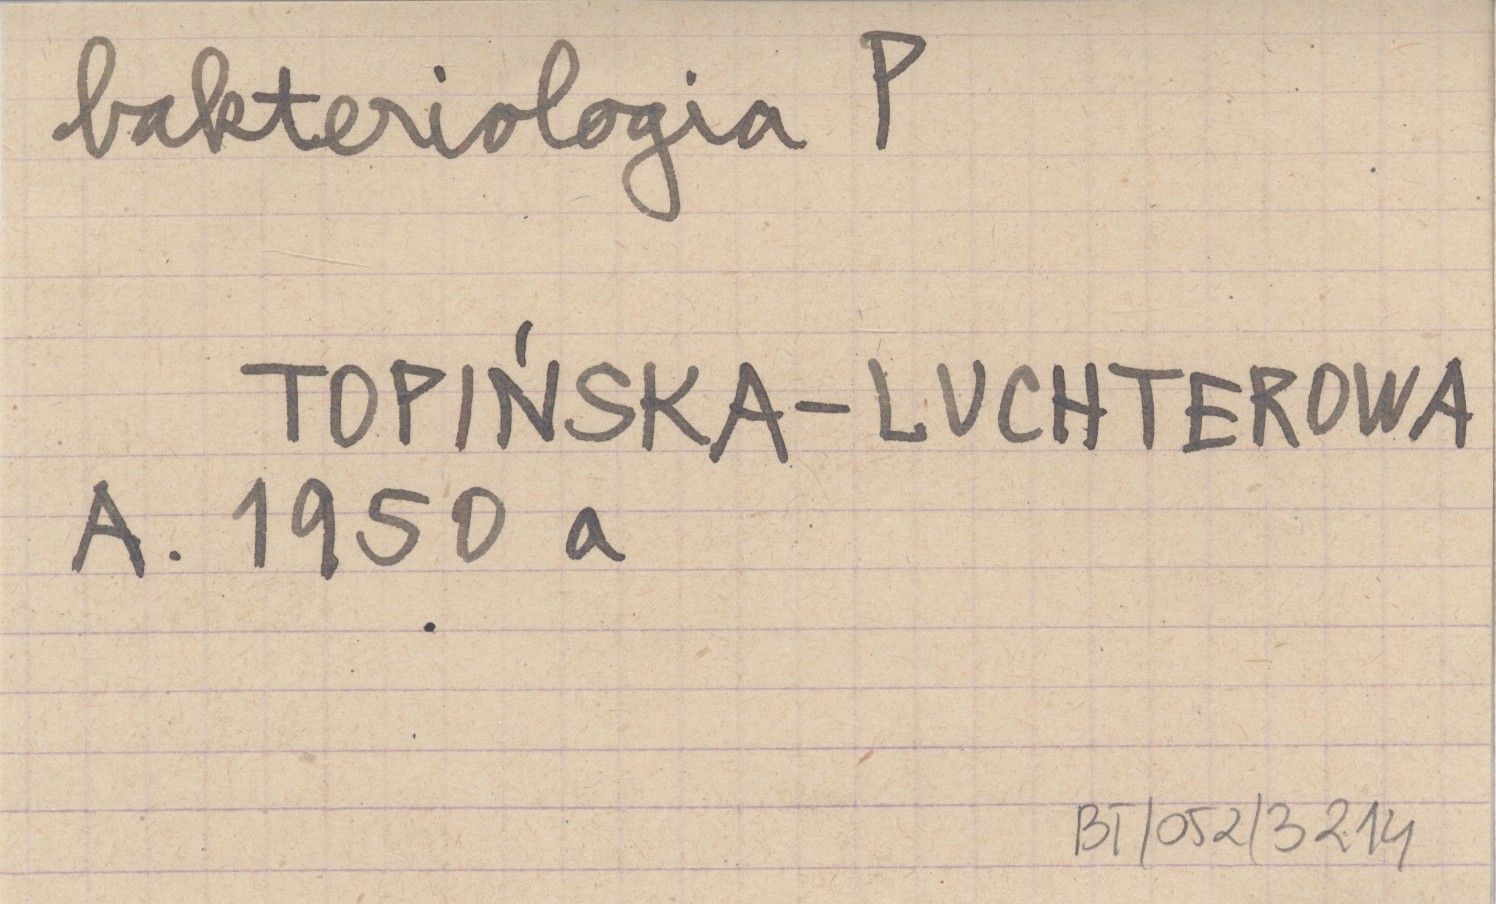 bakteriologia P
TOPIŃSKA-LUCHTEROWA
A. 1950 a
BT/052/3214